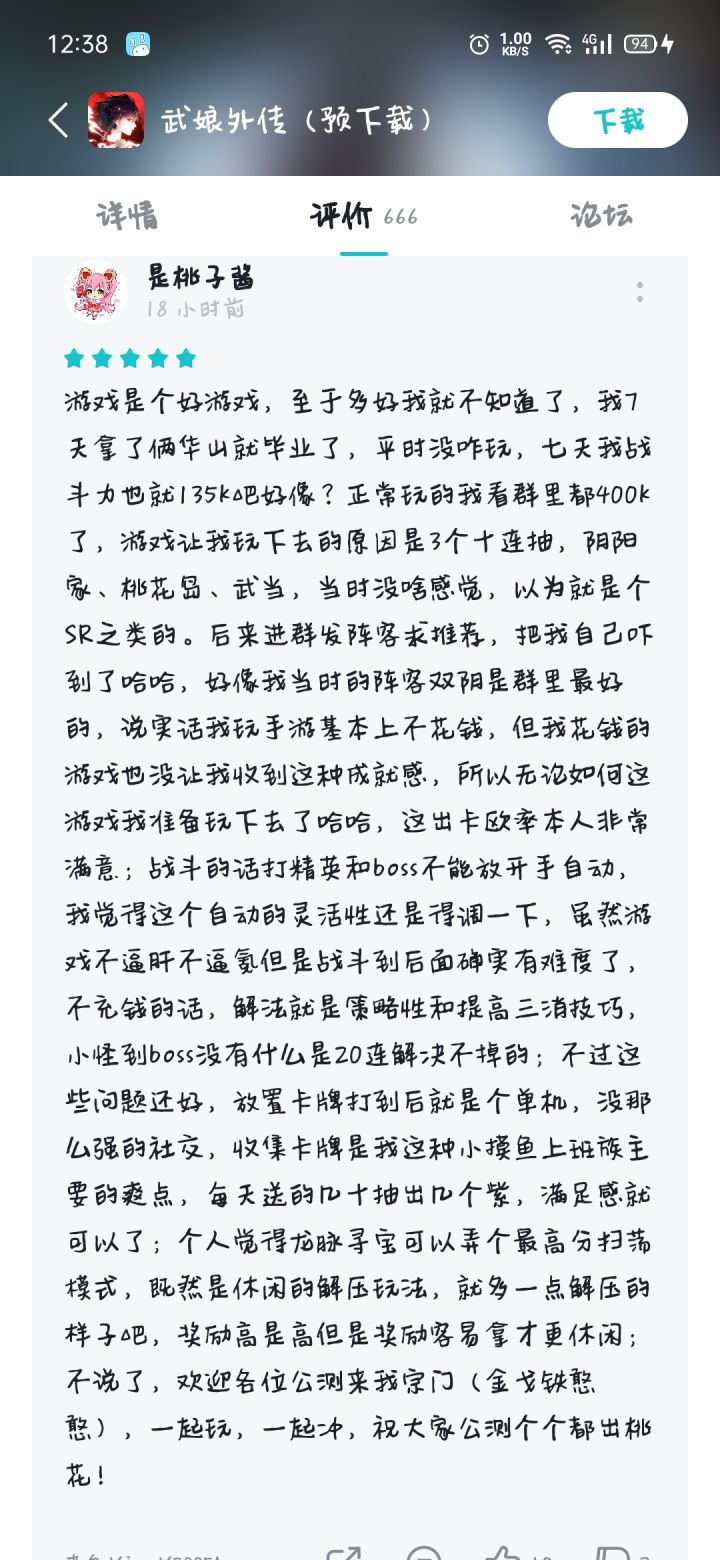 12:38
1.00 KB/S
4G
94
武娘外传（预下载）
下载
详情
评价 666
论坛
是桃子酱
18 小时前
游戏是个好游戏，至于多好我就不知道了，我7
天拿了俩华山就毕业了，平时没咋玩，七天我战
斗力也就135k吧好像？正常玩的我看群里都400k
了，游戏让我玩下去的原因是3个十连抽，阴阳
家、桃花岛、武当，当时没啥感觉，以为就是个
SR之类的。后来进群发阵容求推荐，把我自己吓
到了哈哈，好像我当时的阵容双阴是群里最好
的，说实话我玩手游基本上不花钱，但我花钱的
游戏也没让我收到这种成就感，所以无论如何这
游戏我准备玩下去了哈哈，这出卡欧率本人非常
满意；战斗的话打精英和boss不能放开手自动，
我觉得这个自动的灵活性还是得调一下，虽然游
戏不逼肝不逼氪但是战斗到后面确实有难度了，
不充钱的话，解法就是策略性和提高三消技巧，
小怪到boss没有什么是20连解决不掉的；不过这
些问题还好，放置卡牌打到后就是个单机，没那
么强的社交，收集卡牌是我这种小摸鱼上班族主
要的爽点，每天送的几十抽出几个紫，满足感就
可以了；个人觉得龙脉寻宝可以弄个最高分扫荡
模式，既然是休闲的解压玩法，就多一点解压的
样子吧，奖励高是高但是奖励容易拿才更休闲；
不说了，欢迎各位公测来我宗门（金戈铁憨
憨），一起玩，一起冲，祝大家公测个个都出桃
花！